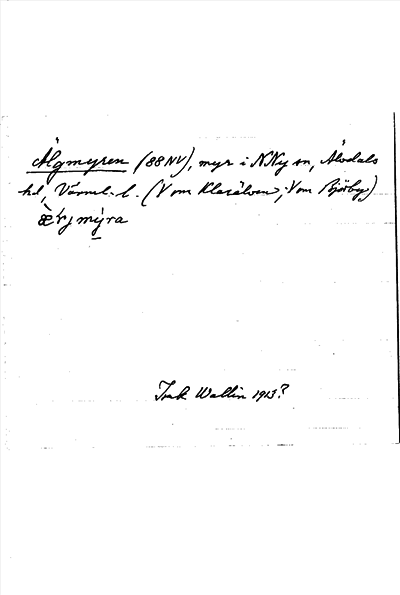 Älgmyren (88NV), myr i N Ny sn, Älvdals
hd, Värml. l. (V om Klarälven; V om Björby)
mýra
Wallin 1913?